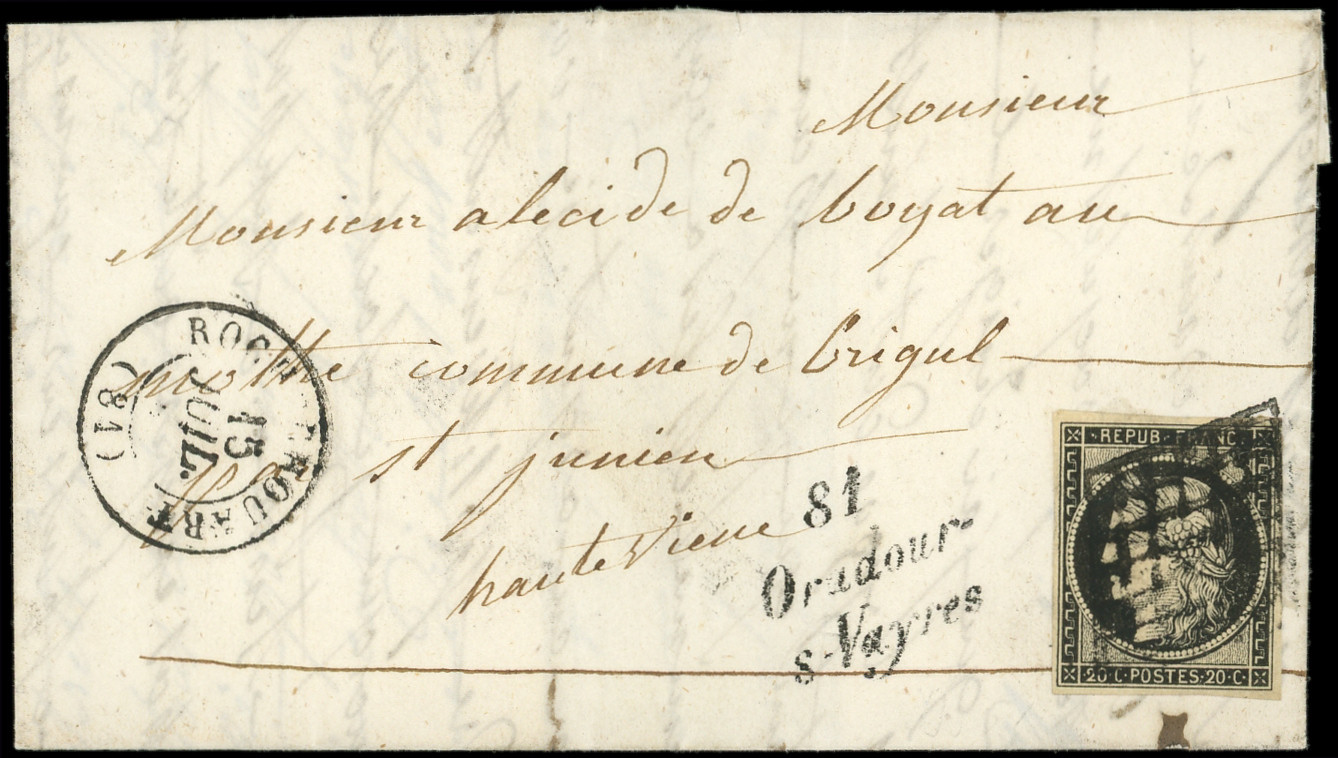 Monsieur
Monsieur alecide de boyat au
mothe commune de brigul
st junien
haute viene
ROCHECHOUART
15
JUIL.
(81)
81
Oradour-
s-Vayres
REPUB·FRANC
20·C·POSTES·20·C·